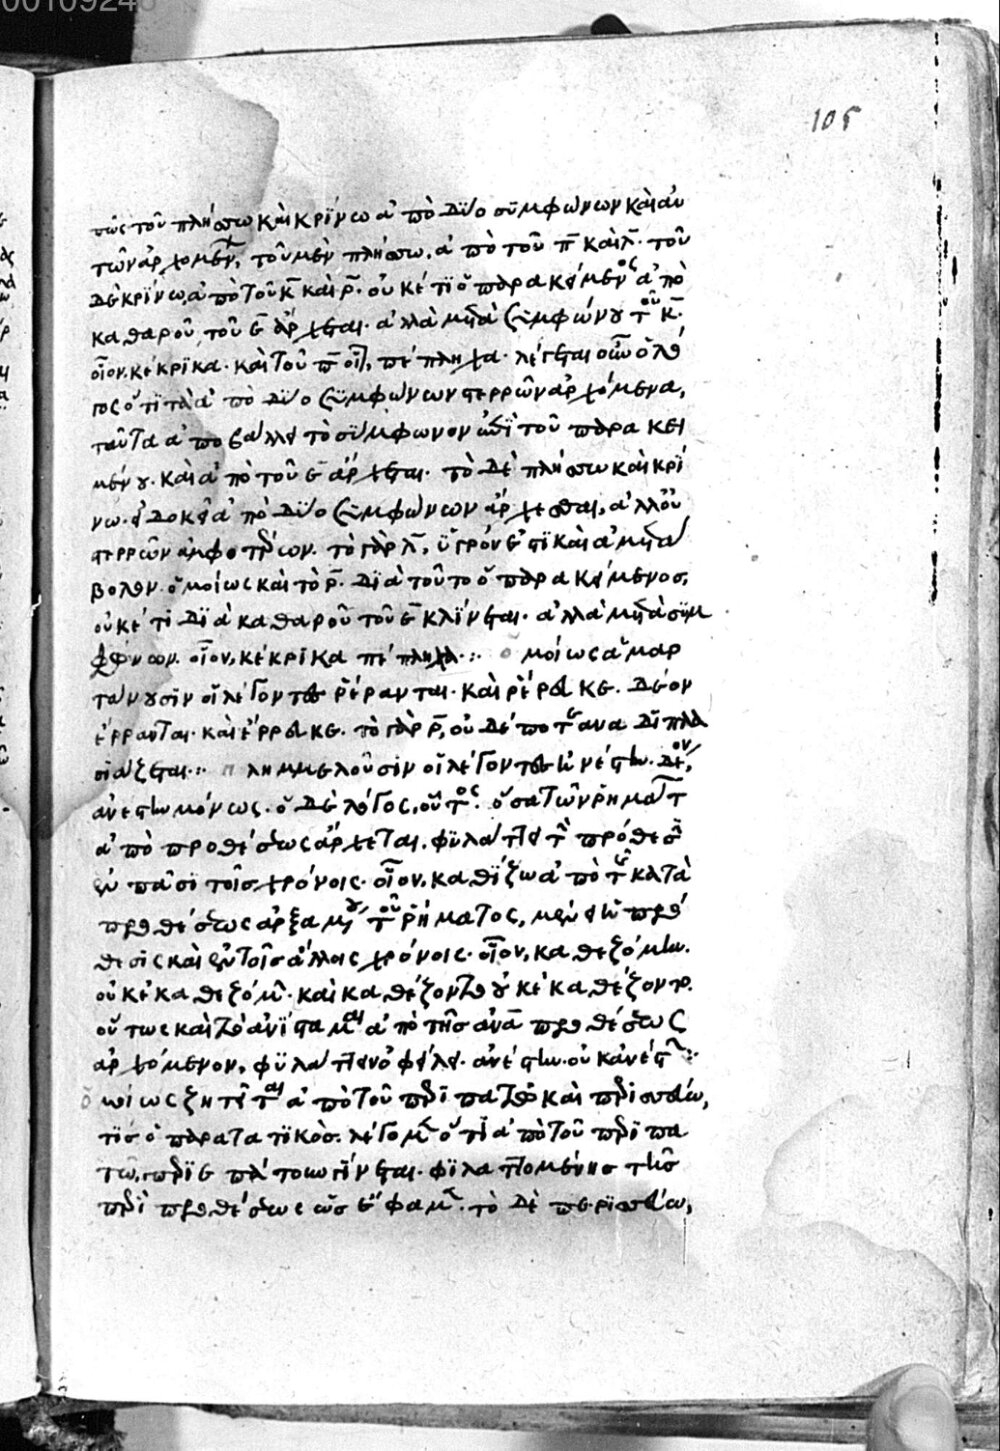 00109246
105
πῶς τοῦ πλήσσω καὶ κρίνω ἀπὸ δύο συμφώνων καὶ αὐ
τῶν ἀρχομένων, τοῦ μὲν πλήσσω, ἀπὸ τοῦ π καὶ λ. τοῦ
δὲ κρίνω, ἀπὸ τοῦ κ καὶ ρ. οὐκέτι ὁ παρακείμενος ἀπὸ
καθαροῦ τοῦ ε ἄρχεται. ἀλλὰ μετὰ συμφώνου τοῦ κ.
οἷον, κέκρικα. καὶ τοῦ π οἷον, πέπληχα. λέγεται οὖν ὁ λό
γος ὅτι τὰ ἀπὸ δύο συμφώνων στερρῶν ἀρχόμενα,
ταῦτα ἀποβάλλει τὸ σύμφωνον ἐπὶ τοῦ παρακει
μένου. καὶ ἀπὸ τοῦ ε ἄρχεται. τὸ δὲ πλήσσω καὶ κρί
νω. εἰ δοκεῖ ἀπὸ δύο συμφώνων ἄρχεσθαι, ἀλλ' οὐ
στερρῶν ἀμφοτέρων. τὸ γὰρ λ, ὑγρόν ἐστι καὶ ἀμετά
βολον. ὁμοίως καὶ τὸ ρ. διὰ τοῦτο ὁ παρακείμενος,
οὐκέτι διὰ καθαροῦ τοῦ ε κλίνεται. ἀλλὰ μετὰ συμ
φώνων. οἷον, κέκρικα πέπληχα. ὁμοίως ἁμαρ
τάνουσιν οἱ λέγοντες ῥέρανται. καὶ ῥέρευκε. δέον
ἔρρανται. καὶ ἔρρευκε. τὸ γὰρ ρ, οὐδέποτε ἀναδιπλα
σιάζεται. πλημμελοῦσιν οἱ λέγοντες ἠνέστην. δέον,
ἀνέστην μόνως. ὁ δὲ λόγος, οὗτος. ὅσα τῶν ῥημάτ
ἀπὸ προθέσεως ἄρχεται, φυλάττει τὴν πρόθεσιν
ἐν πᾶσι τοῖς χρόνοις. οἷον, καθίζω ἀπὸ τῆς κατὰ
προθέσεως ἀρξαμένου τοῦ ῥήματος, μένει ἡ πρό
θεσις καὶ ἐν τοῖς ἄλλοις χρόνοις. οἷον, καθεζόμην.
οὐκ ἐκαθεζόμην. καὶ καθέζοντο οὐκ ἐκαθέζοντο.
οὕτως καὶ τὸ ἀνίσταμαι ἀπὸ τῆς ἀνὰ προθέσεως
ἀρχόμενον, φυλάττειν ὀφείλει. ἀνέστην. οὐκ ἀνέστ
ὁμοίως ζητεῖται ἀπὸ τοῦ περιπατῶ καὶ περισσεύω,
τίς ὁ παρατατικός. λέγομεν ὅτι ἀπὸ τοῦ περιπα
τῶ, περιεπάτουν γίνεται. φυλαττομένης τῆς
περὶ προθέσεως ὡς ἔφαμεν. τὸ δὲ περισσεύω,